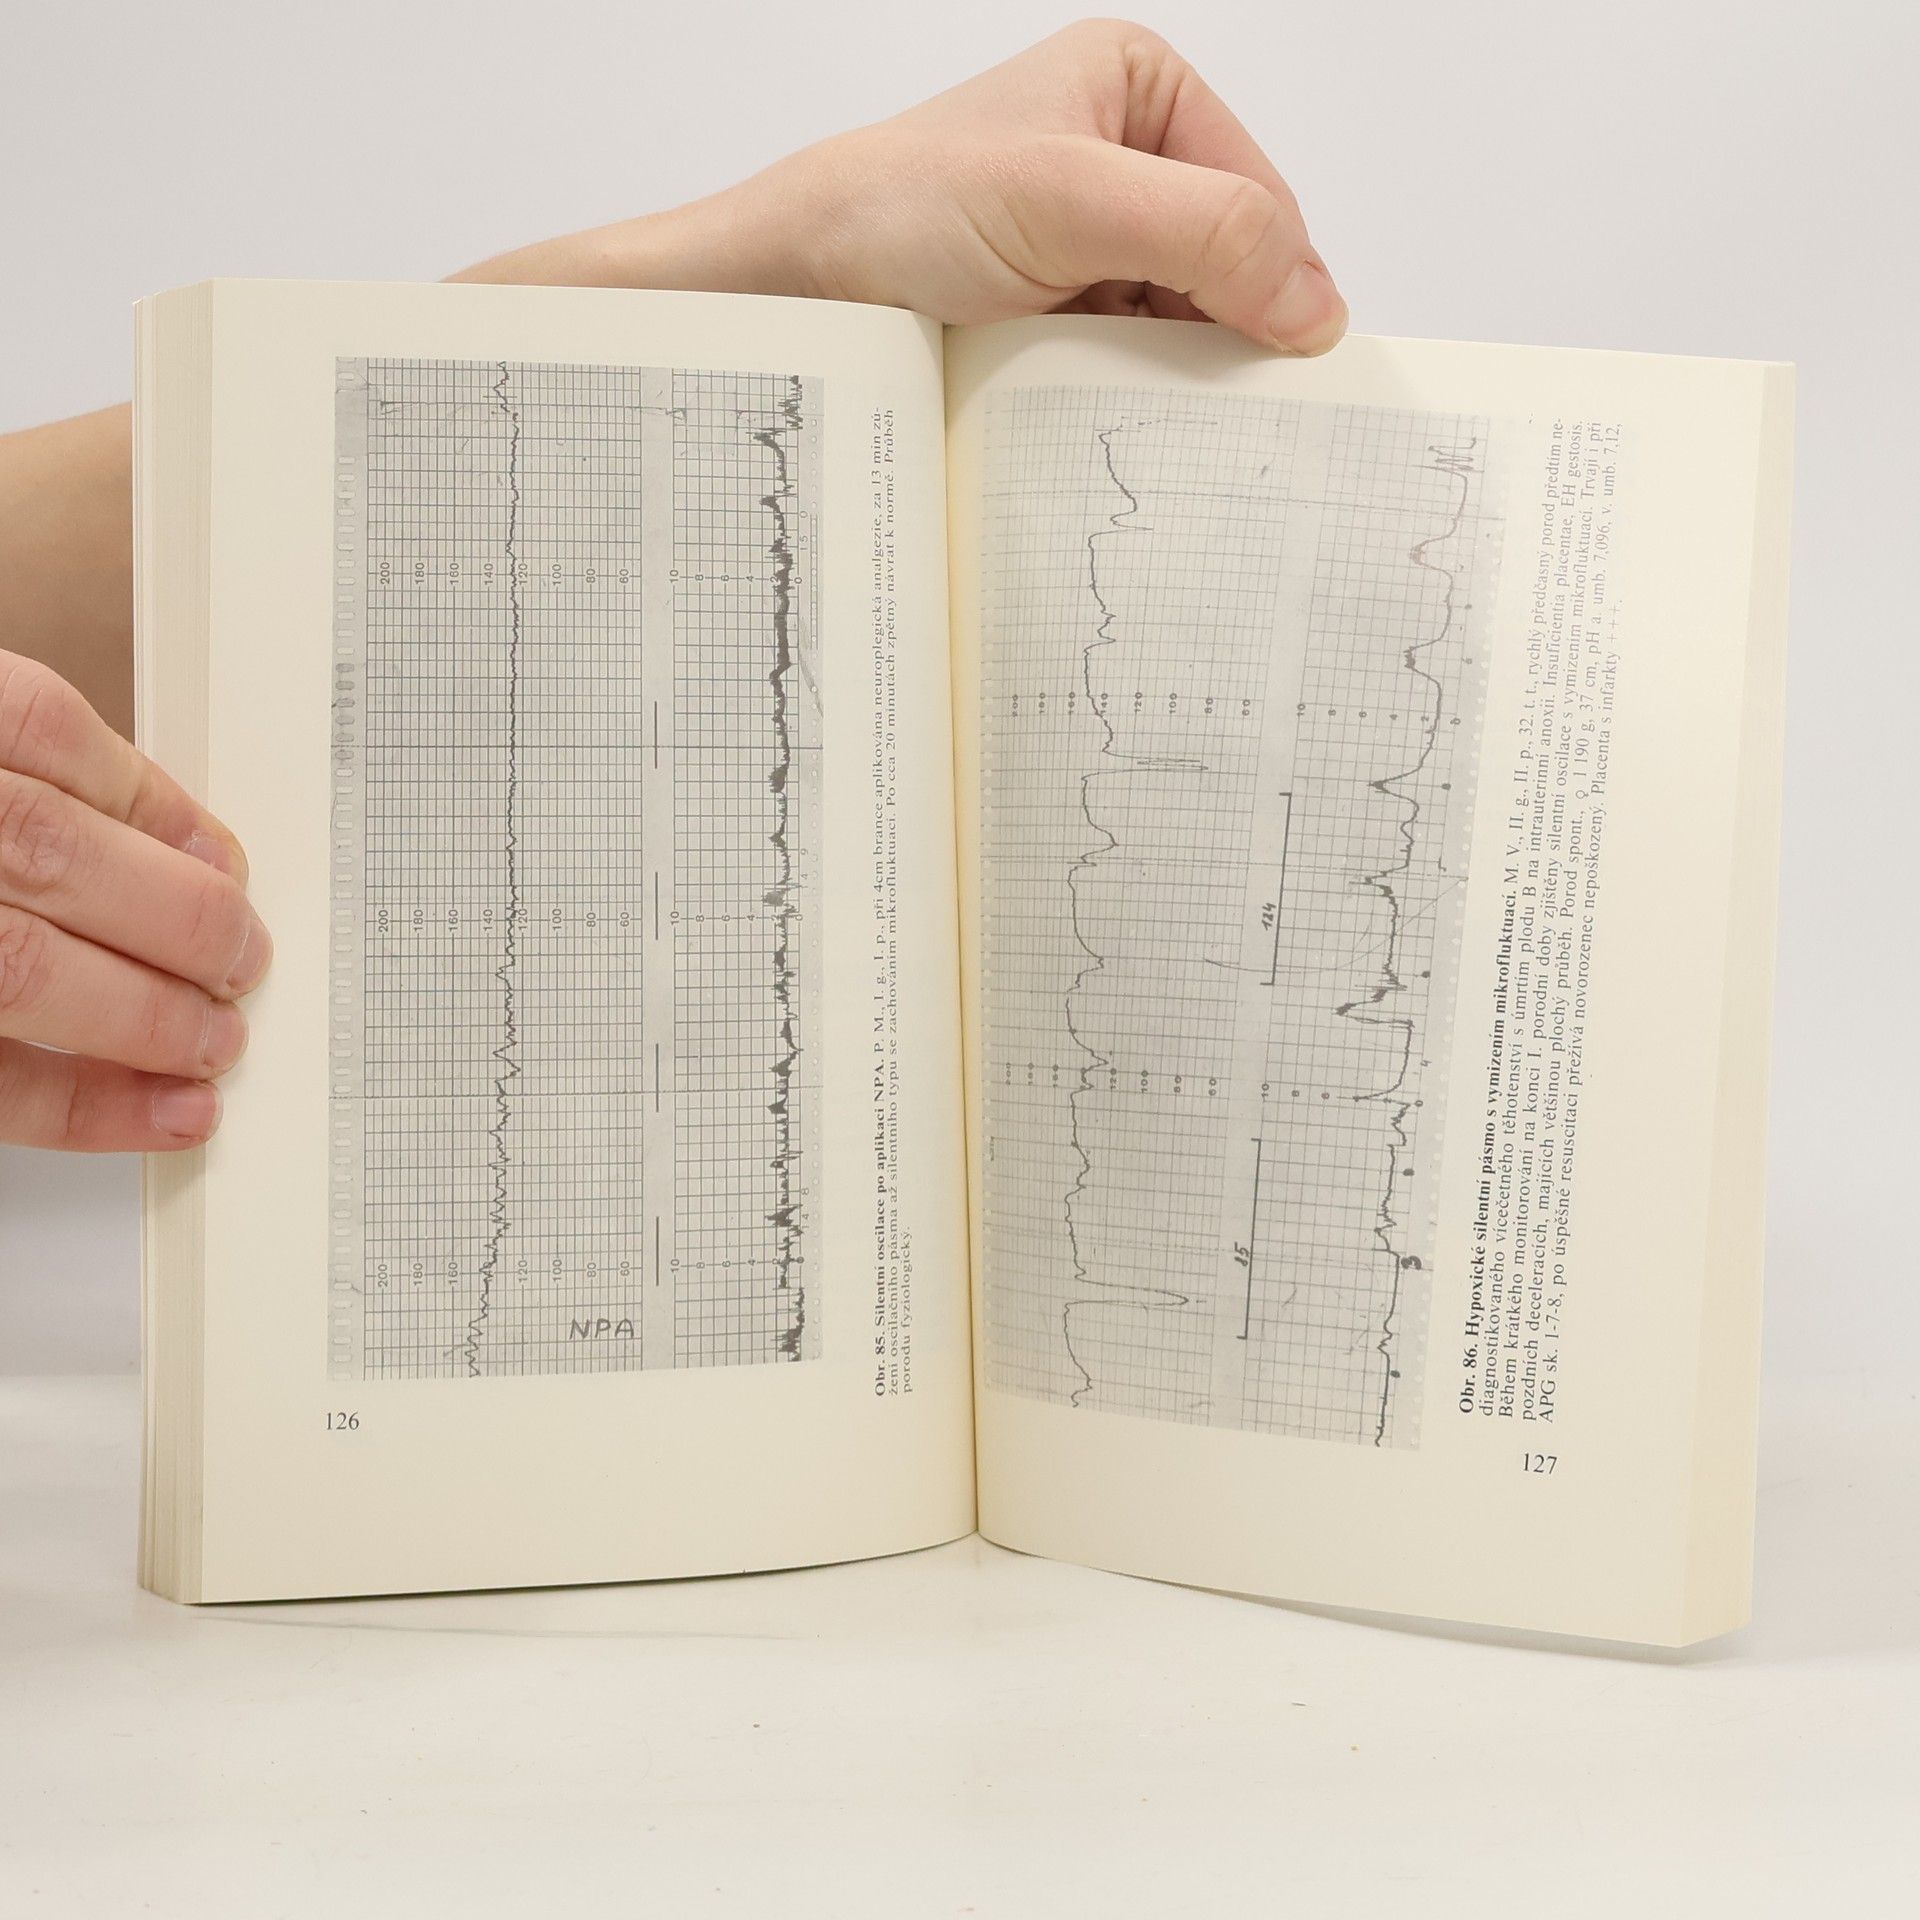 200 180 160 140 120 100 80 60
200 180 160 140 120 100 80 60
200 180 160 120 100 80 60
10 8 6 4 2 0
10 8 6 4 2 0
10 8 6 4 2 0
NPA
Obr. 85. Silentní oscilace po aplikaci NPA. P. M., I. g., I. p., při 4cm brance aplikována neuroplegická analgezie, za 13 min zú-
žení oscilačního pásma až silentního typu se zachováním mikrofluktuací. Po cca 20 minutách zpětný návrat k normě. Průběh
porodu fyziologický.
126
200 180 160 140 120 100 80 60
10 8 6 4 2 0
120 100 80 60
10 8 6
124
85
Obr. 86. Hypoxické silentní pásmo s vymizením mikrofluktuací. M. V., II. g., II. p., 32. t. t., rychlý předčasný porod předtím ne-
diagnostikovaného vícečetného těhotenství s úmrtím plodu B na intrauterinní anoxii. Insuficientia placentae, EH gestosis.
Během krátkého monitorování na konci I. porodní doby zjištěny silentní oscilace s vymizením mikrofluktuací. Trvají i při
pozdních deceleracích, majících většinou plochý průběh. Porod spont., ♀ 1 190 g, 37 cm, pH a. umb. 7,096, v. umb. 7,12,
APG sk. 1-7-8, po úspěšné resuscitaci přežívá novorozenec nepoškozený. Placenta s infarkty +++.
127